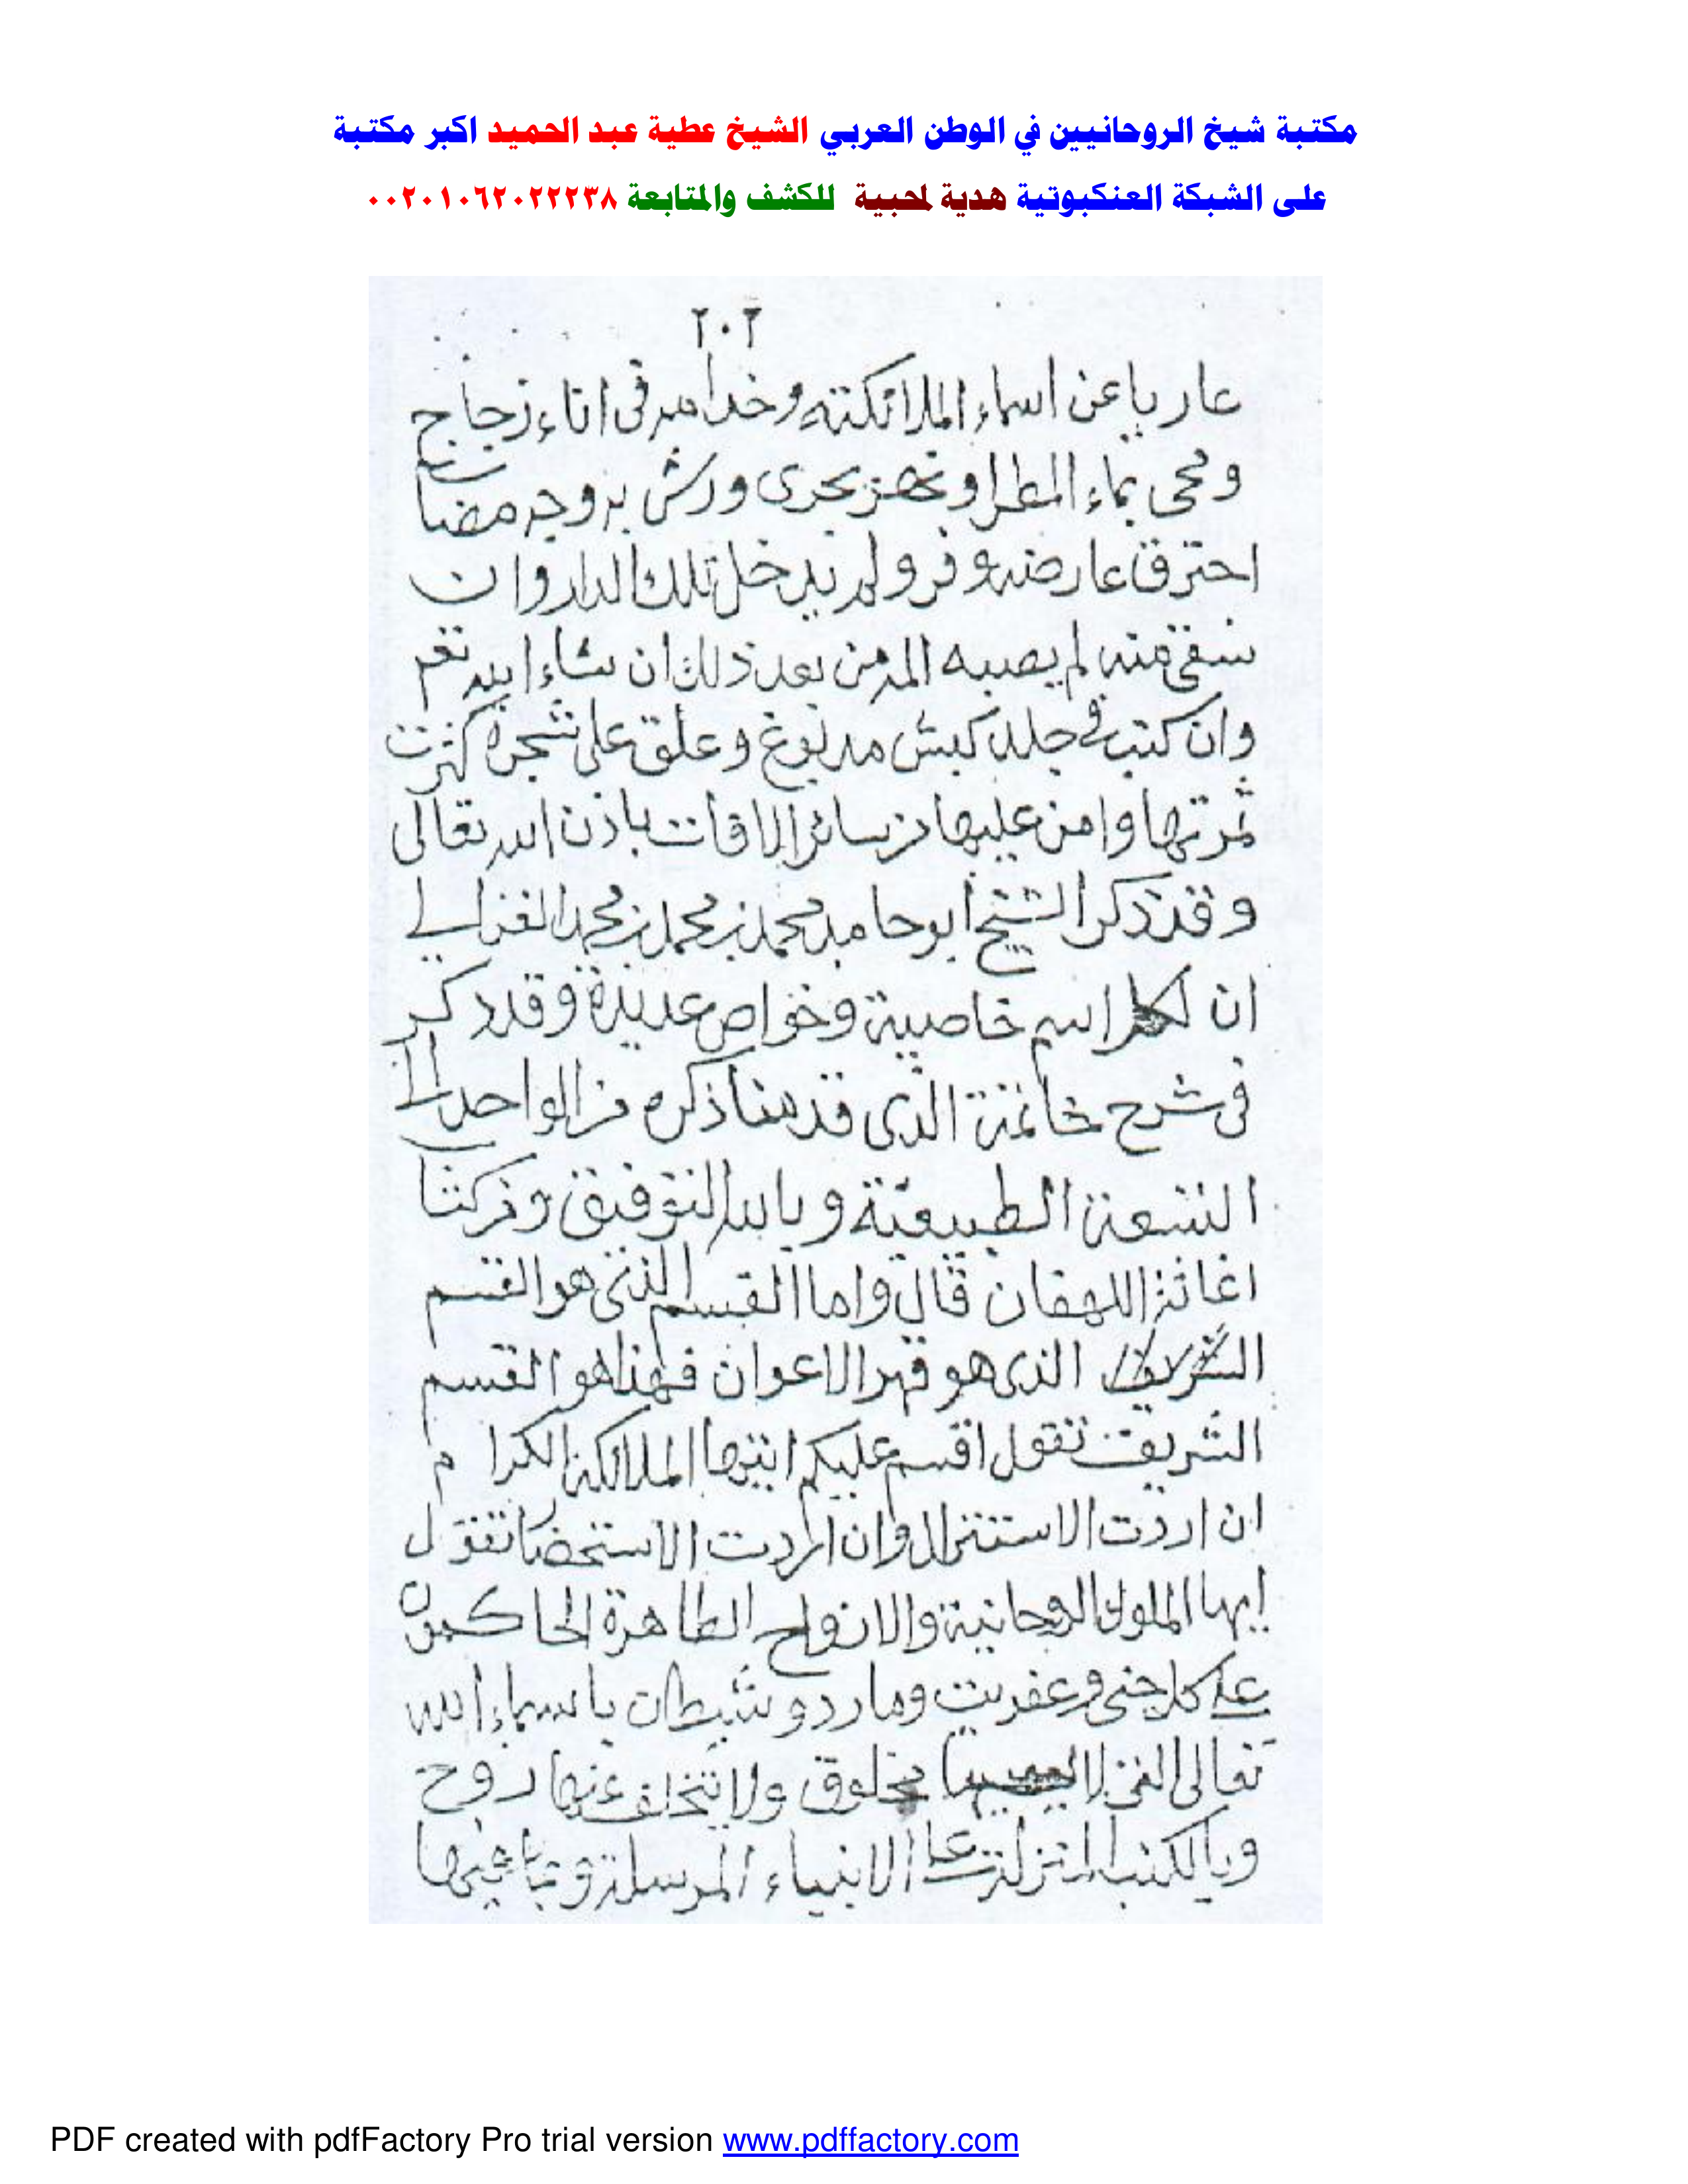 مكتبة شيخ الروحانيين في الوطن العربي الشيخ عطية عبد الحميد اكبر مكتبة
على الشبكة العنكبوتية هدية لمحبية للكشف والمتابعة ٠٠٢٠١٠٦٢٠٢٢٢٣٨
٢٠٢
عاريا عن اسماء الملائكته وخدامه فى اناء زجاج
ومحى بماء المطر او نهر يجرى ورش به وجه مصاب
احترق عارضه وفر ولم يدخل تلك الدار وان
سقى منه لم يصيبه المرض بعد ذلك ان شاء الله تعم
وان كتب فى جلد كبش مدبوغ وعلق على شجرة كثرت
ثمرتها وامن عليها من سائر الافات باذن الله تعالى
وقد ذكر الشيخ ابو حامد محمد بن محمد بن محمد الغزالي
ان لكل اسم خاصية وخواص عديدة وقد ذكر
فى شرح خاتمة الذى قدمنا ذكره من الواحد الى
التسعة الطبيعية وبالله التوفيق وذكرنا
اغاثة اللهفان قال واما القسم الذى هو القسم
الشريف الذى هو قهر الاعوان فهذا هو القسم
الشريف تقول اقسم عليكم ايتها الملائكة الكرام
ان اردت الاستنزال وان اردت الاستحضار تقول
ايها الملوك الروحانية والارواح الطاهرة الحاكمون
على كل جنى وعفريت ومارد وشيطان باسماء الله
تعالى التى لا مخلوق ولا يتخلف عنها روح
وبالكتب المنزلة على الانبياء المرسلة وبما فيها
PDF created with pdfFactory Pro trial version www.pdffactory.com